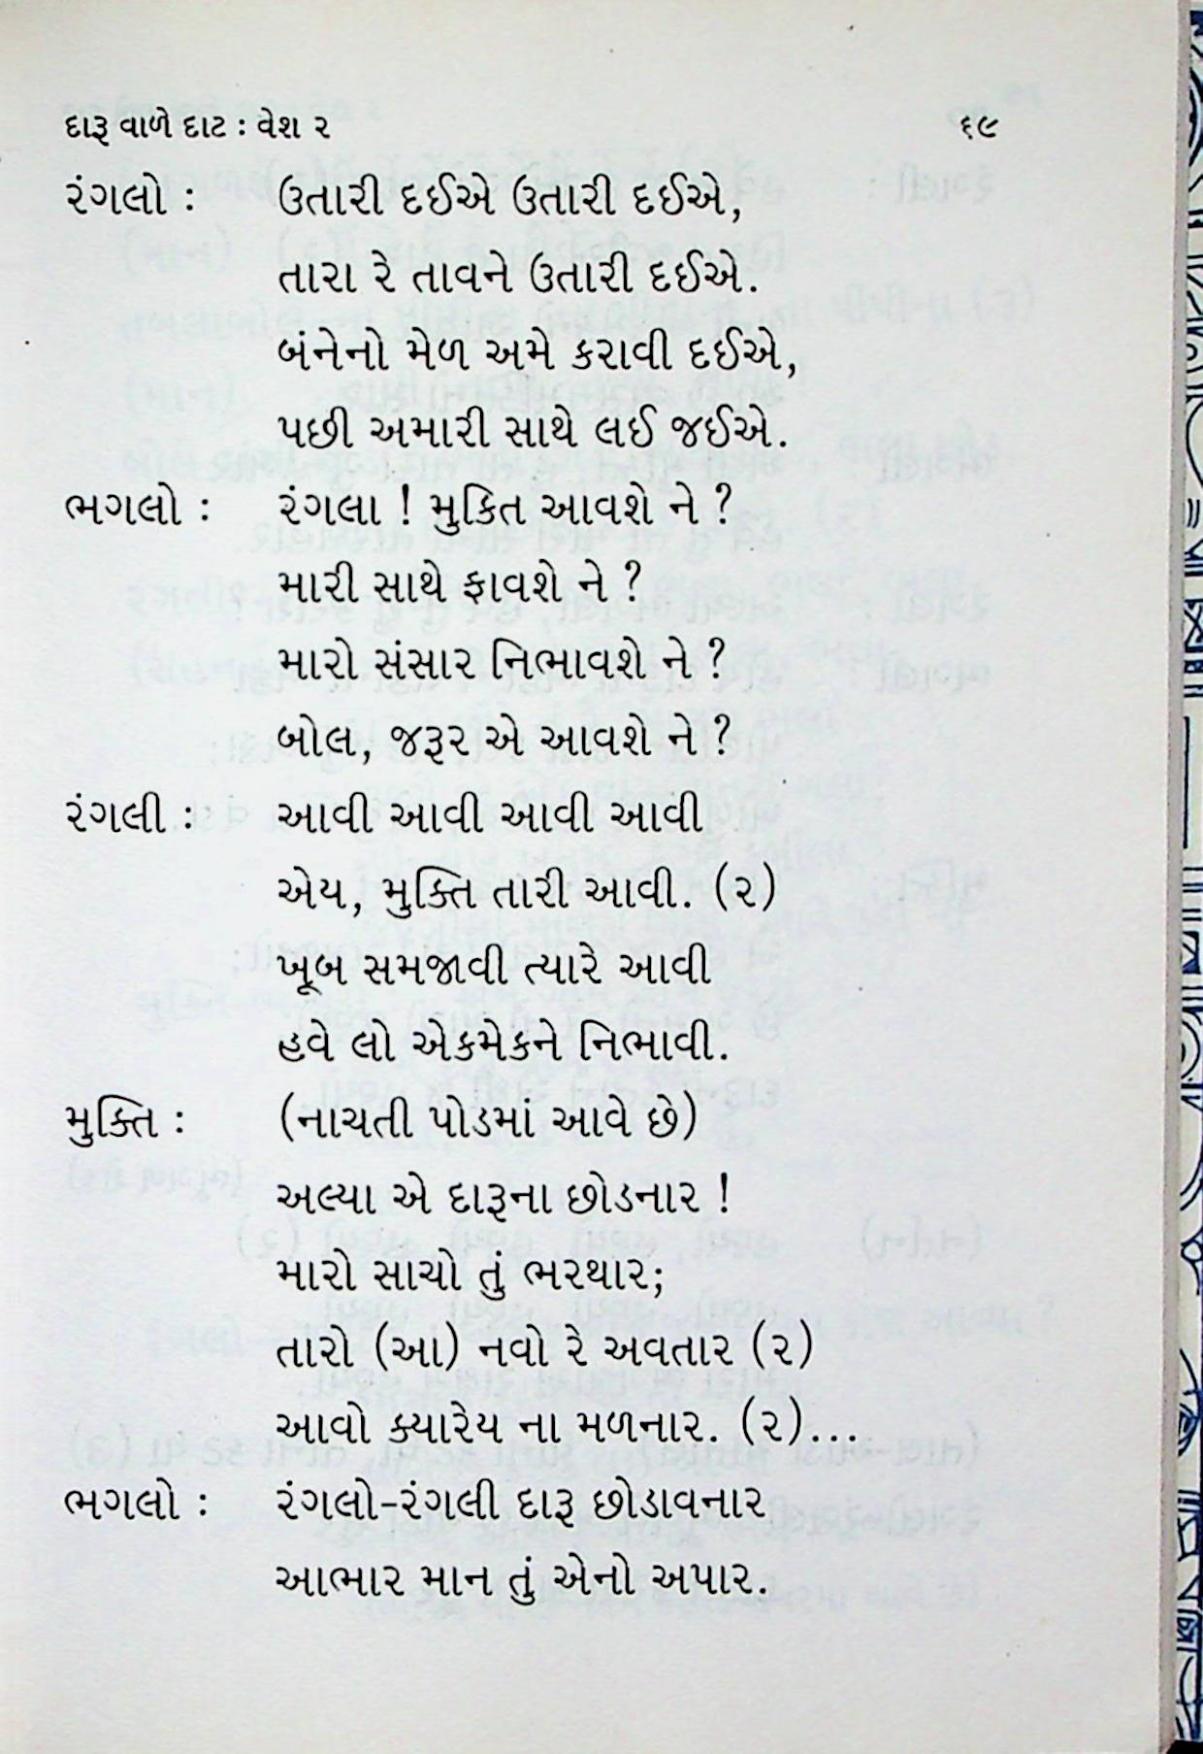 દારૂ વાળે દાટ : વેશ ૨ ૬૯
રંગલો : ઉતારી દઈએ ઉતારી દઈએ,
તારા રે તાવને ઉતારી દઈએ.
બંનેનો મેળ અમે કરાવી દઈએ,
પછી અમારી સાથે લઈ જઈએ.
ભગલો : રંગલા ! મુકિત આવશે ને ?
મારી સાથે ફાવશે ને ?
મારો સંસાર નિભાવશે ને ?
બોલ, જરૂર એ આવશે ને ?
રંગલી : આવી આવી આવી આવી
એય, મુક્તિ તારી આવી. (૨)
ખૂબ સમજાવી ત્યારે આવી
હવે લો એકમેકને નિભાવી.
મુક્તિ : (નાચતી પોડમાં આવે છે)
અલ્યા એ દારૂના છોડનાર !
મારો સાચો તું ભરથાર;
તારો (આ) નવો રે અવતાર (૨)
આવો ક્યારેય ના મળનાર. (૨)...
ભગલો : રંગલો-રંગલી દારૂ છોડાવનાર
આભાર માન તું એનો અપાર.